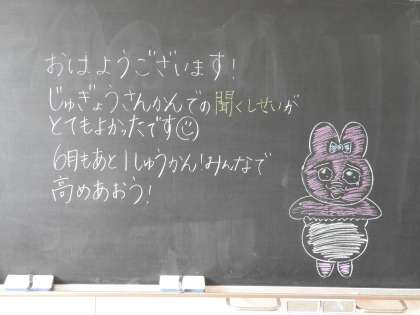 おはようございます!
じゅぎょうさんかんでの聞くしせいが
とてもよかったです☺
6月もあと1しゅうかん!みんなで
高めあおう!